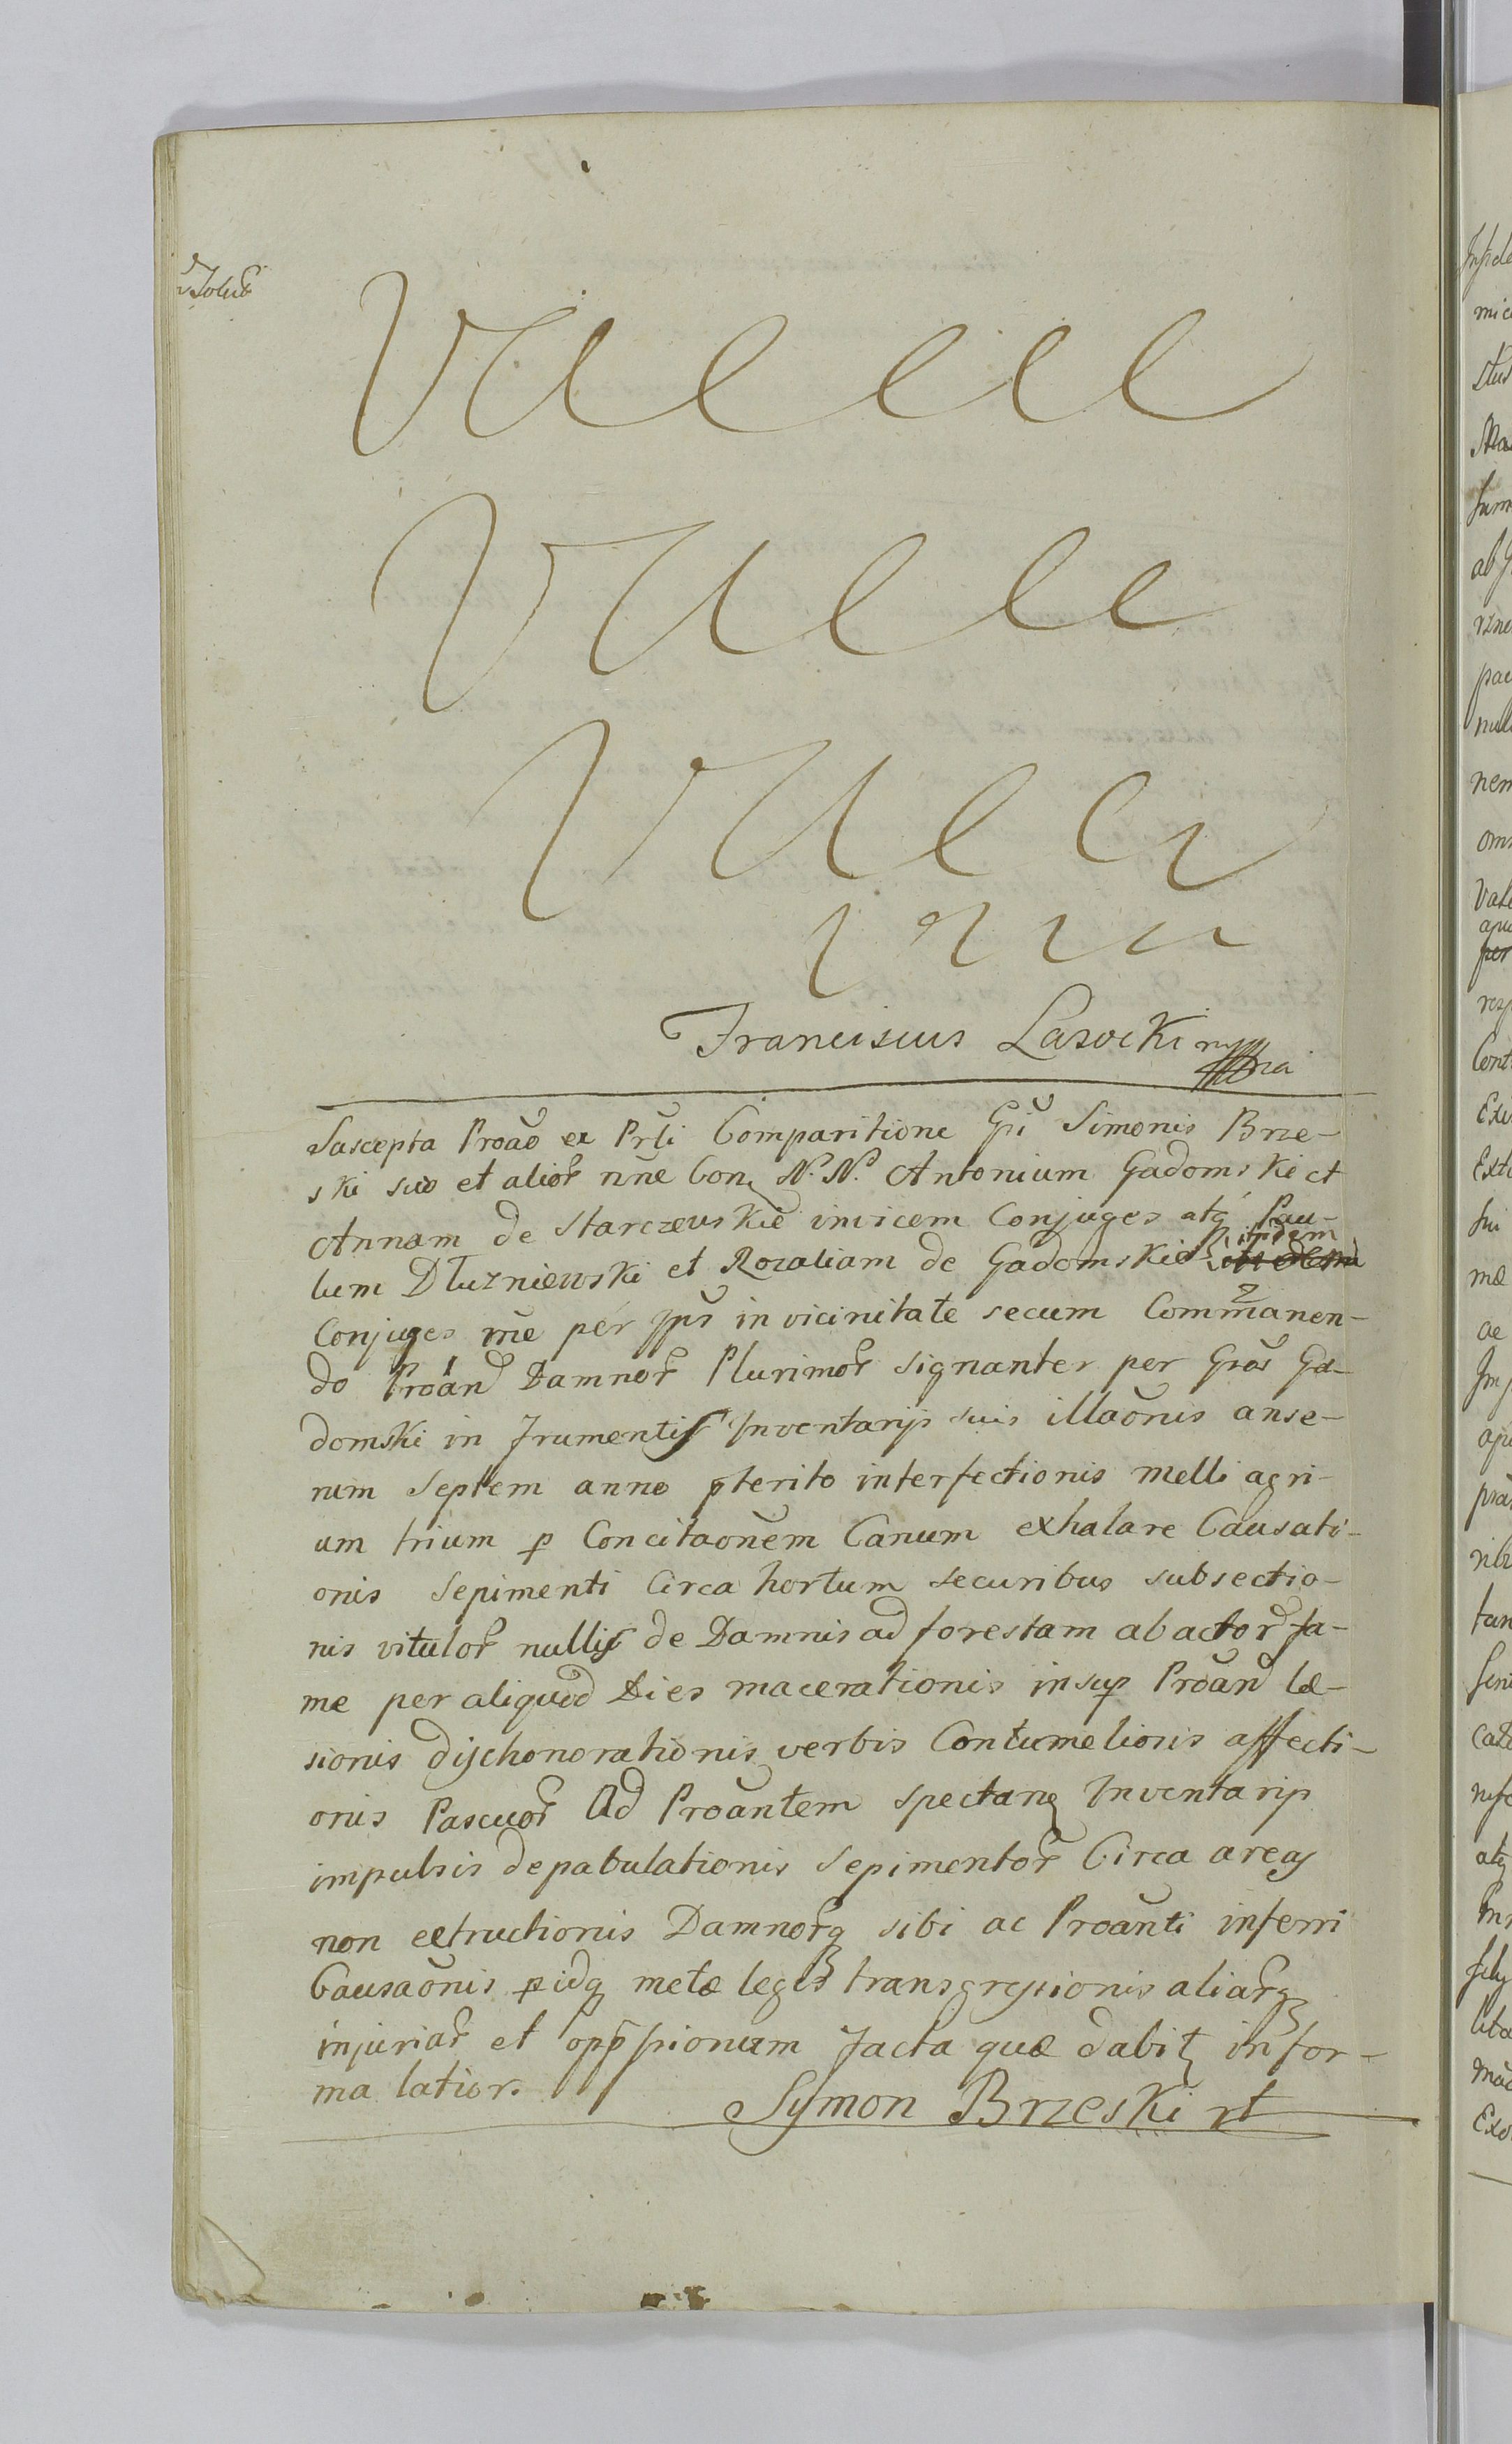 Vallll
Valll
Vall
Franciscus Lasocki mpria
Suscepta Proaõ ex Prŝti Comparitione Gŝi Simonis Brze-
ski suo et alior nñe Con N. N. Antonium Gadomski et
Annam de Starczewskie invicem Conjuges atq Pau-
lum Dłużniewski et Rozaliam de Gadomskie itidem
Conjuges rñe per ipŝs in vicinitate secum Commanen-
do Proan Damnor Plurimor signanter per Gŝos Ga-
domski in frumentis Inventarijs suis illaõnis anse-
rum Septem anno pterito interfectionis melli agri-
um trium p Concitaõnem Canum exhalare Causati-
onis Sepimenti Circa hortum securibus subsectio-
nis vitulor nullis de Damnis ad forestam abactor fa-
me per aliquod Dies macerationis insup Proan læ-
sionis dishonorationis verbis Contumeliosis affecti-
onis Pascuor Ad Proãntem spectan Inventarijs
impulsis depabulationis Sepimentor Circa areas
non extructionis Damnorq sibi ac Proãnti inferri
Causaõnis pidq metæ legis transgressionis aliarq
injuriar et opp̃ssionum facta quæ dabit in for-
ma latior.
Symon Brzeski rt